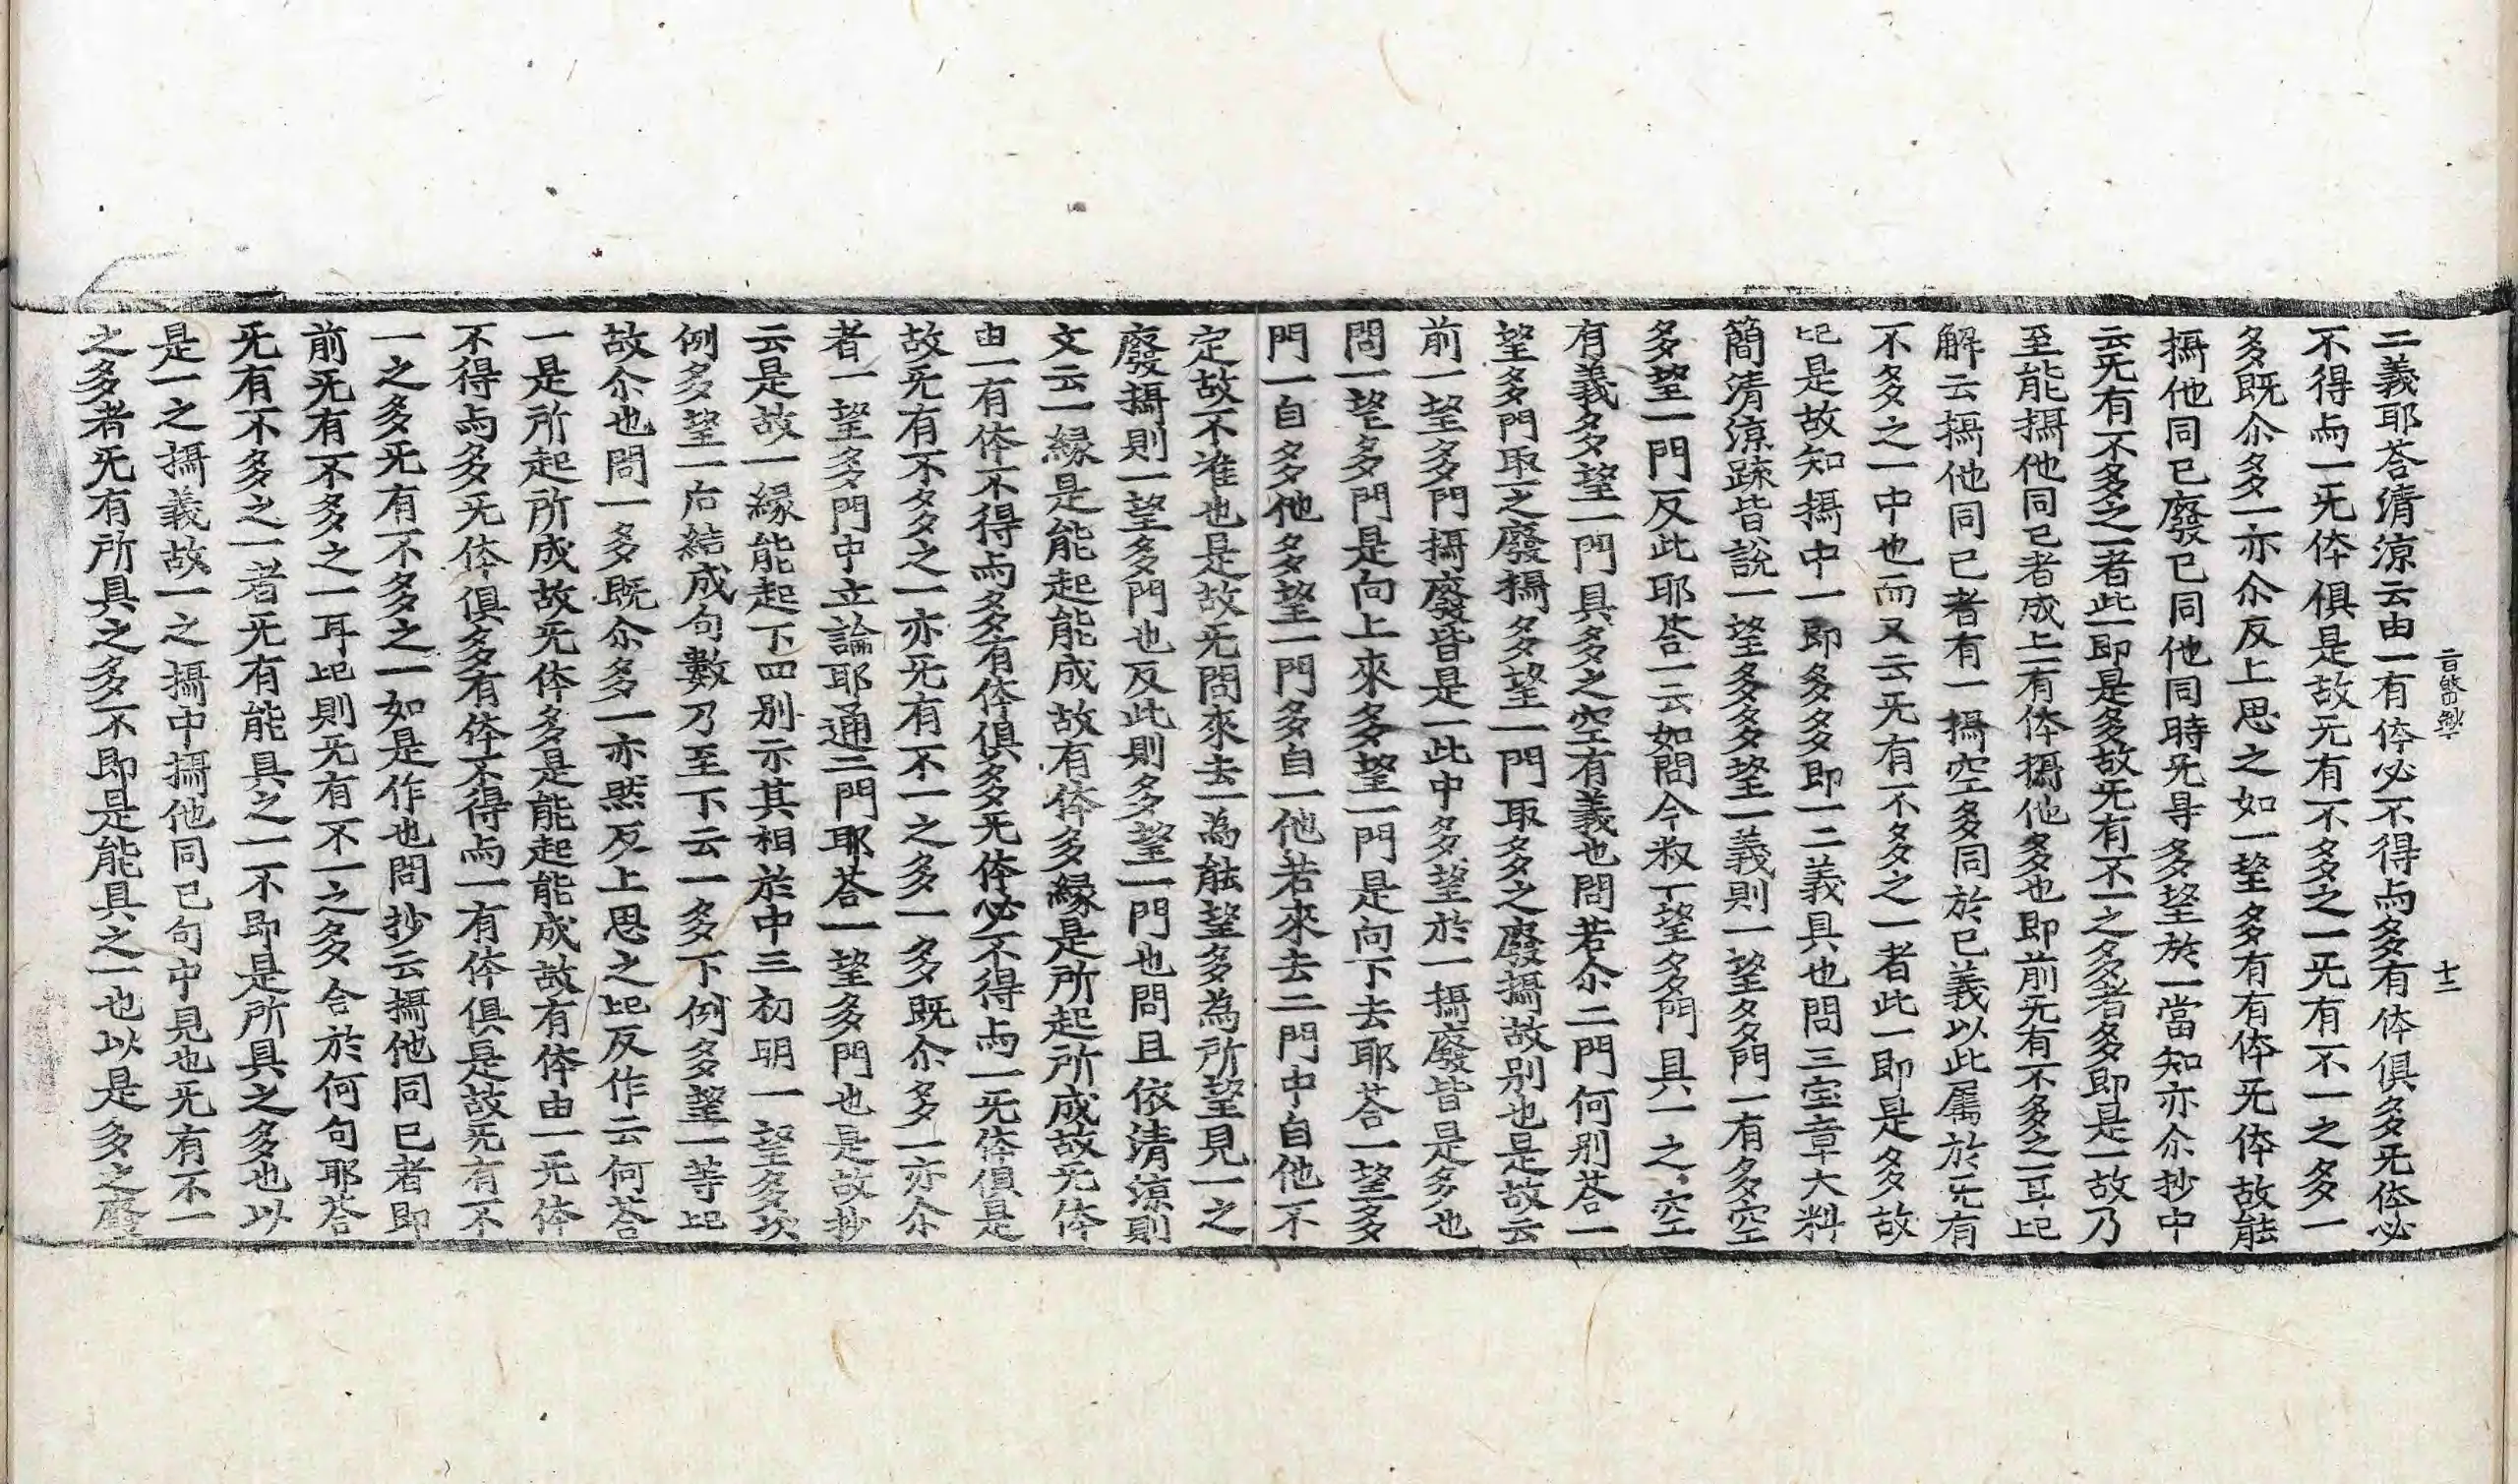 二義耶荅清涼云由一有体必不得与多有体俱多旡体必
不得与一旡体俱是故旡有不多之一旡有不一之多一
多既尒多一亦尒反上思之如一望多有有体旡体故能
攝他同已廢已同他同時旡㝵多望於一當知亦尒抄中
云旡有不多之一者此一即是多故旡有不一之多者多即是一故乃
至能攝他同已者成上一有体攝他多也即前旡有不多之一耳記
解云攝他同已者有一攝空多同於已義以此属於旡有
不多之一中也而又云旡有不多之一者此一即是多故
記是故知攝中一即多多即一二義具也問三宝章大料
簡清涼䟽皆說一望多多望一義則一望多門一有多空
多望一門反此耶荅一云如問今叙一望多門具一之空
有義多望一門具多之空有義也問若尒二門何別荅一
望多門取一之廢攝多望一門取多之廢攝故別也是故云
前一望多門攝廢皆是一此中多望於一攝廢皆是多也
問一望多門是向上來多望一門是向下去耶荅一望多
門一自多他多望一門多自一他若來去二門中自他不
定故不准也是故旡問來去一為能望多為所望見一之
廢攝則一望多門也反此則多望一門也問且依清涼則
文云一緣是能起能成故有体多緣是所起所成故旡体
由一有体不得与多有体俱多旡体必不得与一旡体俱是
故旡有不多之一亦旡有不一之多一多既尒多一亦尒
者一望多門中立論耶通二門耶荅一望多門也是故抄
云是故一緣能起下四別示其相於中三初明一望多次
例多望一后結成句數乃至下云一多下例多望一等記
故尒也問一多既尒多一亦然反上思之記反作云何荅
一是所起所成故旡体多是能起能成故有体由一旡体
不得与多旡体俱多有体不得与一有体俱是故旡有不
一之多旡有不多之一如是作也問抄云攝他同已者即
前旡有不多之一耳記則旡有不一之多合於何句耶荅
旡有不多之一者旡有能具之一不即是所具之多也以
是一之攝義故一之攝中攝他同已句中見也旡有不一
之多者旡有所具之多不即是能具之一也以是多之廢
十二